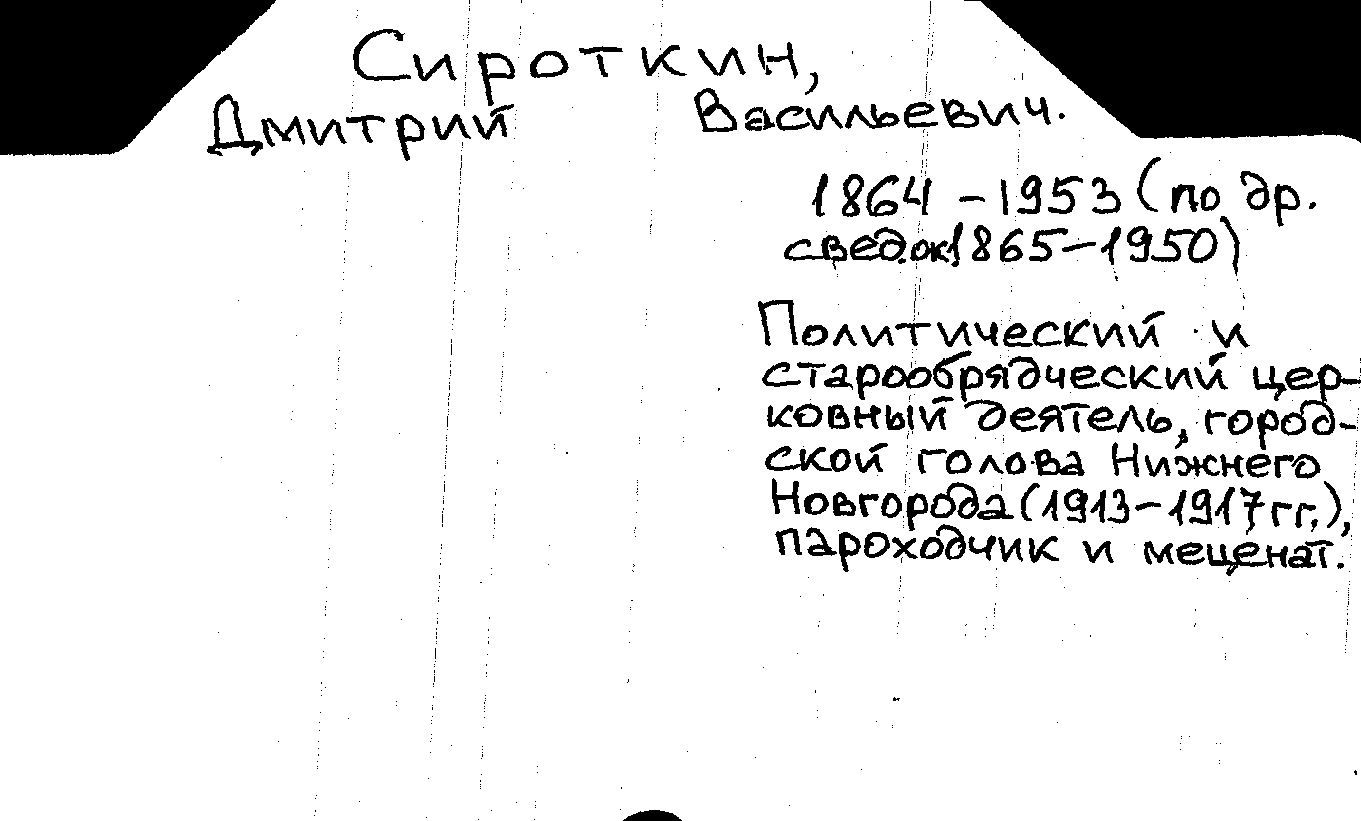 Сироткин,
Дмитрий Васильевич.
1864 – 1953 (по др.
свед. ок 1865 – 1950)
Политический и
старообрядческий цер-
ковный деятель, город-
ской голова Нижнего
Новгорода (1913 – 1917 гг.),
пароходчик и меценат.